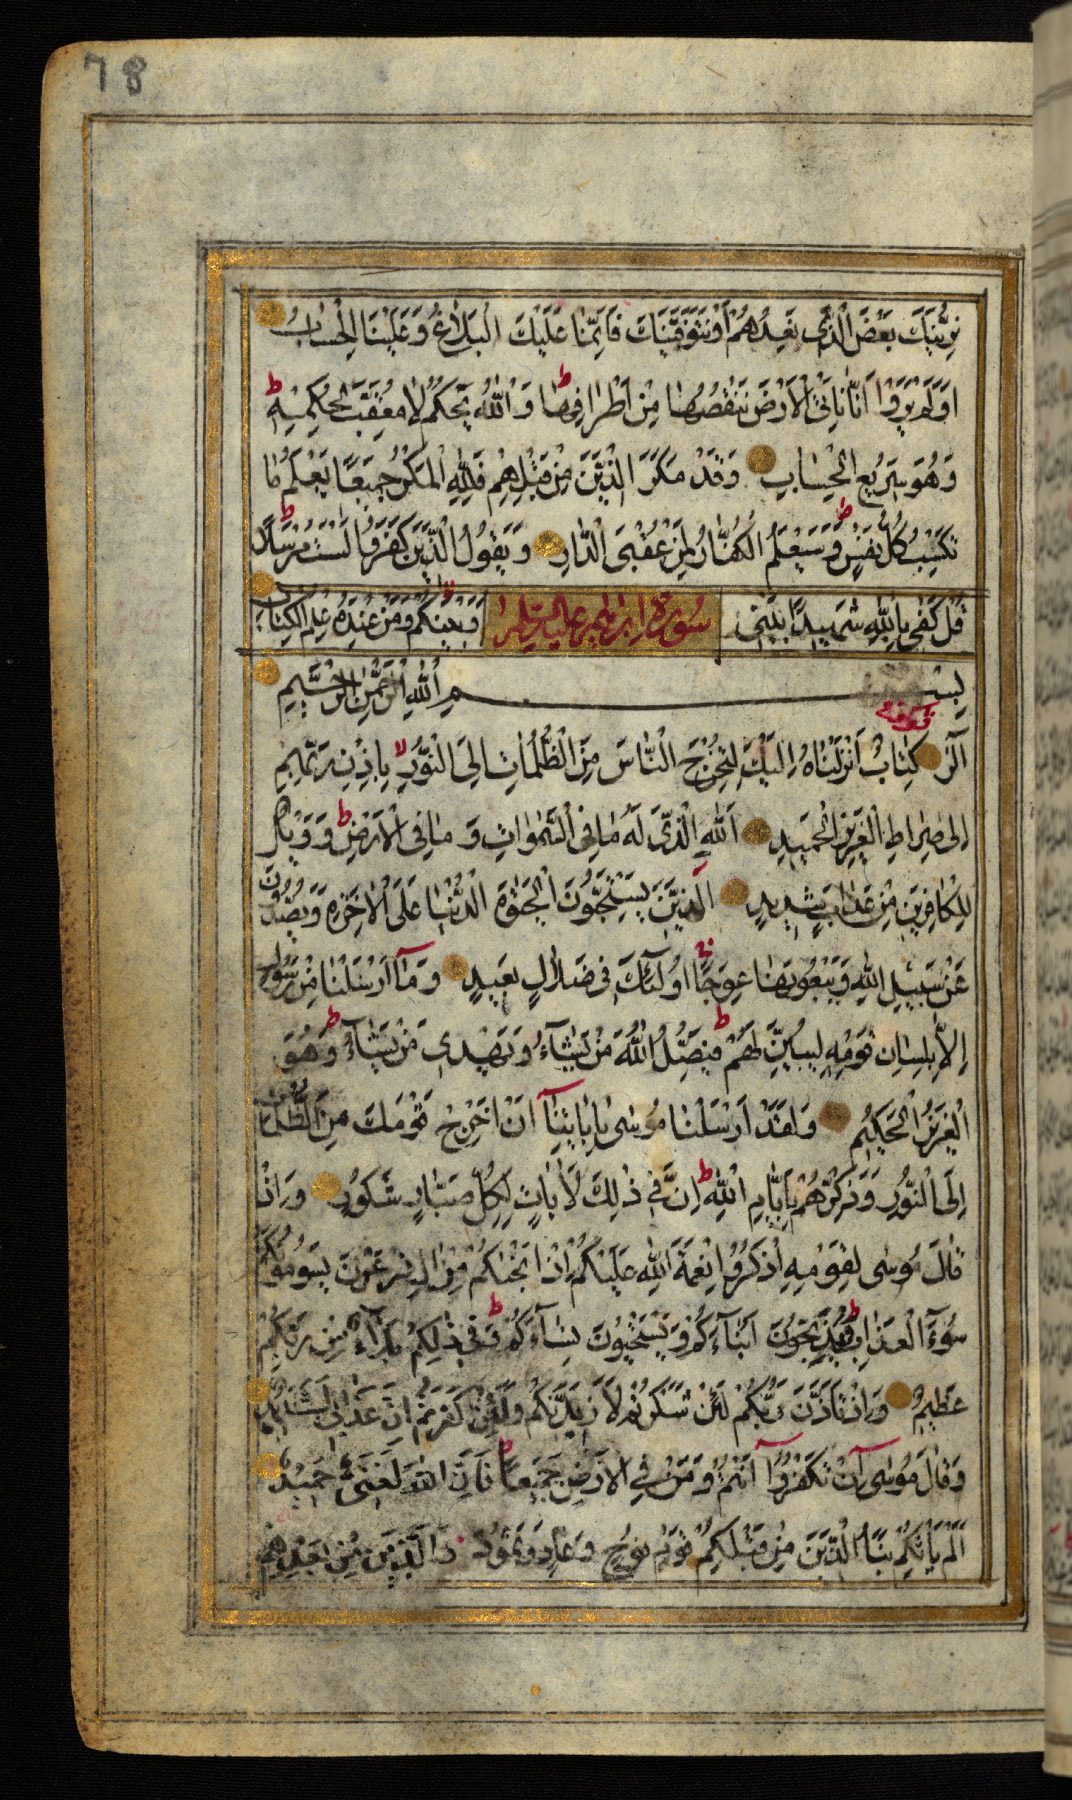 78
نُرِيَنَّكَ بَعْضَ الَّذِي نَعِدُهُمْ أَوْ نَتَوَفَّيَنَّكَ فَإِنَّمَا عَلَيْكَ الْبَلَاغُ وَعَلَيْنَا الْحِسَابُ
اَوَلَمْ يَرَوْا اَنَّا نَاْتِي الْاَرْضَ نَنْقُصُهَا مِنْ اَطْرَافِهَا ط وَاللّٰهُ يَحْكُمُ لَا مُعَقِّبَ لِحُكْمِهٖ ط
وَهُوَ سَرِيعُ الْحِسَابِ وَقَدْ مَكَرَ الَّذِينَ مِنْ قَبْلِهِمْ فَلِلّٰهِ الْمَكْرُ جَمِيعًا يَعْلَمُ مَا
تَكْسِبُ كُلُّ نَفْسٍ ط وَسَيَعْلَمُ الْكُفَّارُ لِمَنْ عُقْبَى الدَّارِ وَيَقُولُ الَّذِينَ كَفَرُوا لَسْتَ مُرْسَلًا ط
قُلْ كَفٰى بِاللّٰهِ شَهِيدًا بَيْنِي سورة ابراهيم عليه وَبَيْنَكُمْ وَمَنْ عِنْدَهُ عِلْمُ الْكِتَابِ
بِسْمِ اللّٰهِ الرَّحْمٰنِ الرَّحِيمِ
الٓرٰ كِتَابٌ اَنْزَلْنَاهُ اِلَيْكَ لِتُخْرِجَ النَّاسَ مِنَ الظُّلُمَاتِ اِلَى النُّورِ لا بِاِذْنِ رَبِّهِمْ
اِلٰى صِرَاطِ الْعَزِيزِ الْحَمِيدِ اَللّٰهِ الَّذِي لَهُ مَا فِي السَّمٰوَاتِ وَمَا فِي الْاَرْضِ ط وَوَيْلٌ
لِلْكَافِرِينَ مِنْ عَذَابٍ شَدِيدٍ الَّذِينَ يَسْتَحِبُّونَ الْحَيٰوةَ الدُّنْيَا عَلَى الْاٰخِرَةِ وَيَصُدُّونَ
عَنْ سَبِيلِ اللّٰهِ وَيَبْغُونَهَا عِوَجًا اُولٰٓئِكَ فِي ضَلَالٍ بَعِيدٍ وَمَآ اَرْسَلْنَا مِنْ رَسُولٍ
اِلَّا بِلِسَانِ قَوْمِهٖ لِيُبَيِّنَ لَهُمْ ط فَيُضِلُّ اللّٰهُ مَنْ يَشَآءُ وَيَهْدِي مَنْ يَشَآءُ ط وَهُوَ
الْعَزِيزُ الْحَكِيمُ وَلَقَدْ اَرْسَلْنَا مُوسٰى بِاٰيَاتِنَآ اَنْ اَخْرِجْ قَوْمَكَ مِنَ الظُّلُمَاتِ
اِلَى النُّورِ وَذَكِّرْهُمْ بِاَيَّامِ اللّٰهِ ط اِنَّ فِي ذٰلِكَ لَاٰيَاتٍ لِكُلِّ صَبَّارٍ شَكُورٍ وَاِذْ
قَالَ مُوسٰى لِقَوْمِهِ اذْكُرُوا نِعْمَةَ اللّٰهِ عَلَيْكُمْ اِذْ اَنْجٰكُمْ مِنْ اٰلِ فِرْعَوْنَ يَسُومُونَكُمْ
سُوٓءَ الْعَذَابِ وَيُذَبِّحُونَ اَبْنَآءَكُمْ وَيَسْتَحْيُونَ نِسَآءَكُمْ ط وَفِي ذٰلِكُمْ بَلَآءٌ مِنْ رَبِّكُمْ
عَظِيمٌ وَاِذْ تَاَذَّنَ رَبُّكُمْ لَئِنْ شَكَرْتُمْ لَاَزِيدَنَّكُمْ وَلَئِنْ كَفَرْتُمْ اِنَّ عَذَابِي لَشَدِيدٌ
وَقَالَ مُوسٰى اِنْ تَكْفُرُوٓا اَنْتُمْ وَمَنْ فِي الْاَرْضِ جَمِيعًا ط فَاِنَّ اللّٰهَ لَغَنِيٌّ حَمِيدٌ
اَلَمْ يَاْتِكُمْ نَبَاُ الَّذِينَ مِنْ قَبْلِكُمْ قَوْمِ نُوحٍ وَعَادٍ وَثَمُودَ وَالَّذِينَ مِنْ بَعْدِهِمْ